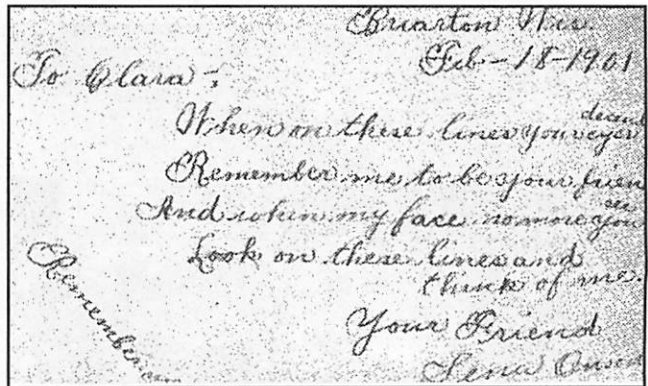 Briarton Wis.
Feb - 18 - 1901
To Clara -,
decend
When on these lines your eyes
Remember me to be your frien
see
And when my face no more you
Look on these lines and
think of me.
Your Friend
Lena
Remember